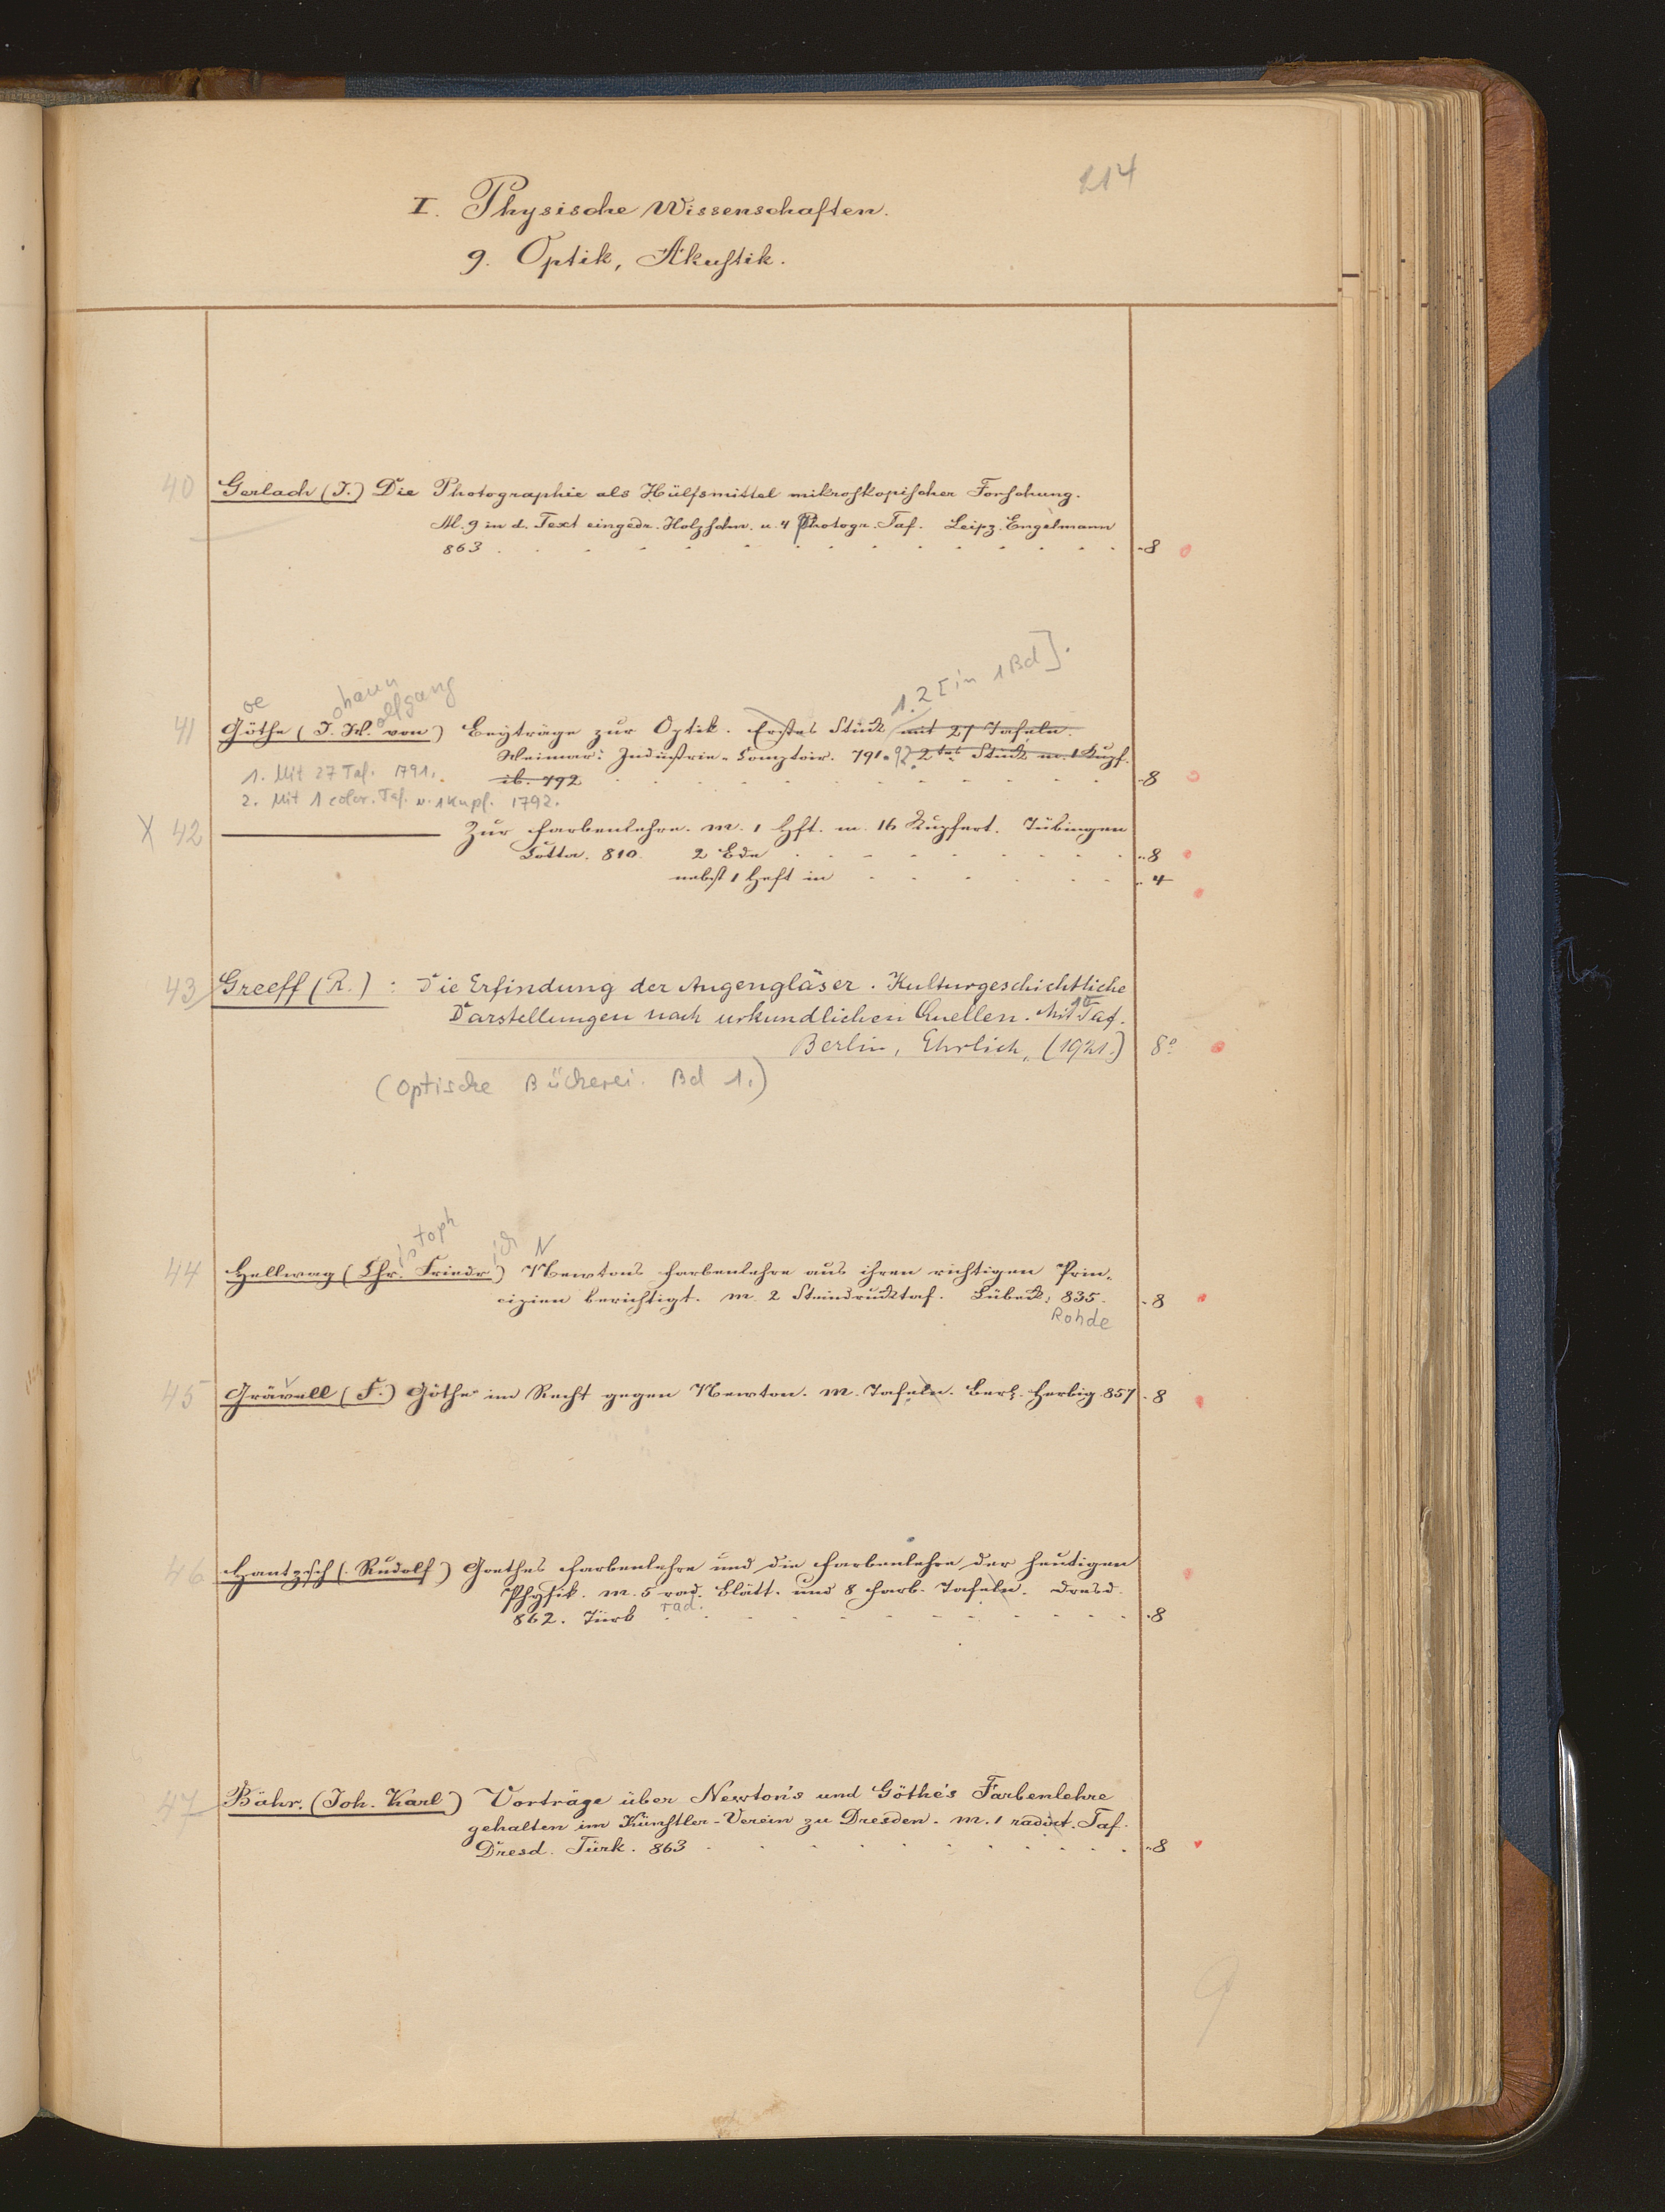 214
I. Physische Wissenschaften.
9. Optik, Akustik.
40 Gerlach (J.) Die Photographie als Hülfsmittel mikroskopischer Forschung.
M. 9 in d. Text eingedr. Holzschn. u. 4 Photogr. Taf. Leipz. Engelmann
863 . . . . . . . . . . . . . 8
1.2 [in 1 Bd].
oe ohann olfgang
41 Göthe (J. W. von) Beyträge zur Optik. Erstes Stück mit 27 Tafeln.
Weimar: Industrie-Comptoir. 791.92. 2tes Stück m. 1 Kupf.
1. Mit 27 Taf. 1791. ib. 792 . . . . . . . . . . . 8
2. Mit 1 color. Taf. u. 1 Kupf. 1792.
X 42 ——— Zur Farbenlehre. m. 1 Hft. m. 16 Kupfert. Tübingen
Cotta. 810. 2 Bde . . . . . . . . 8
nebst 1 Heft in . . . . . . 4
43 Greeff (R.) : Die Erfindung der Augengläser. Kulturgeschichtliche
Darstellungen nach urkundlichen Quellen. Mit Taf.
Berlin, Ehrlich, (1921.) 8°
(Optische Bücherei. Bd 1.)
istoph ich N
44 Hellwag (Chr. Friedr.) Newtons Farbenlehre aus ihren richtigen Prin-
cipien berichtigt. m. 2 Steindrucktaf. Lübeck: 835. 8
Rohde
45 Grävell (F.) Göthe im Recht gegen Newton. m. Tafeln. Berl. Herbig 857. 8
46 Hantzsch (Rudolf) Goethes Farbenlehre und die Farbenlehre der heutigen
Physik. m. 5 rad. Blätt. und 8 farb. Tafeln. Dresd.
rad.
862. Türk . . . . . . . . . . . 8
47 Bähr. (Joh. Karl) Vorträge über Newton's und Göthe's Farbenlehre
gehalten im Künstler-Verein zu Dresden. m. 1 radirt. Taf.
Dresd. Türk. 863 . . . . . . . . . . 8
9